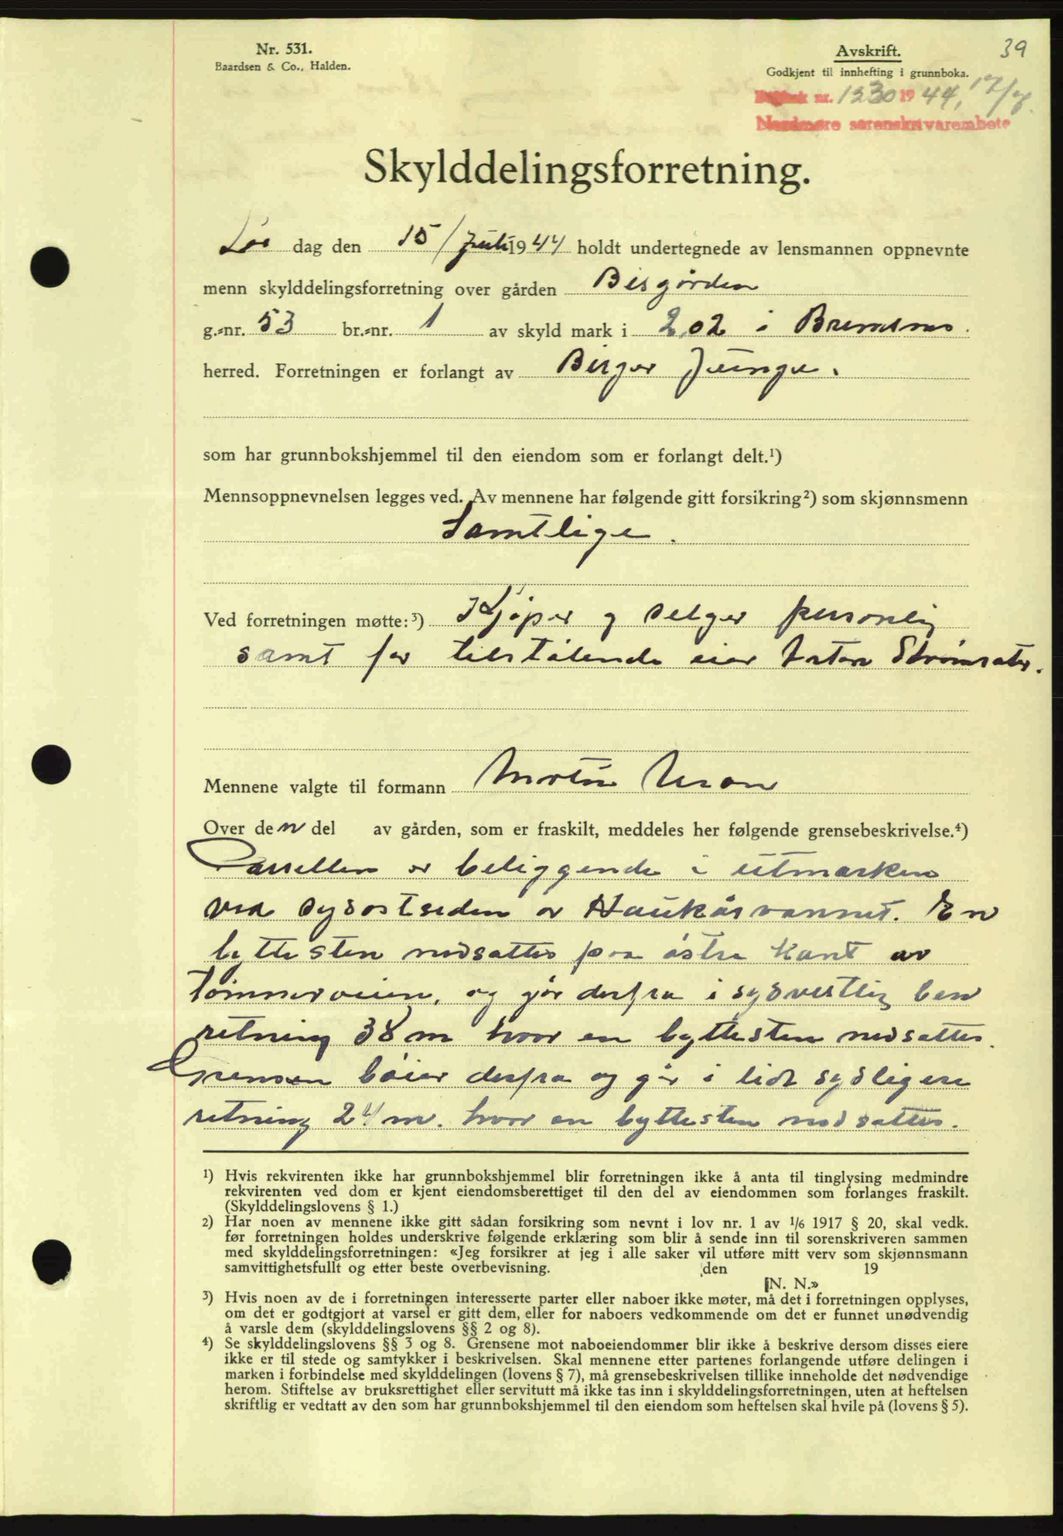 Nr. 531.
Baardsen & Co., Halden.
Avskrift.
39
Godkjent til innhefting i grunnboka.
Dagbok nr. 1230 1944, 17/7.
Nordmøre sorenskrivarembete
Skylddelingsforretning.
Lør dag den 15/Juli 1944 holdt undertegnede av lensmannen oppnevnte
menn skylddelingsforretning over gården Bisgården
g.-nr. 53 br.-nr. 1 av skyld mark i 2,02 i Bremsnes.
herred. Forretningen er forlangt av Birger Junge.
som har grunnbokshjemmel til den eiendom som er forlangt delt.¹)
Mennsoppnevnelsen legges ved. Av mennene har følgende gitt forsikring²) som skjønnsmenn
Samtlige.
Ved forretningen møtte:³) Kjøper og selger personlig
samt for tilstøtende eier Anton Strømsæter.
Mennene valgte til formann
Over den del av gården, som er fraskilt, meddeles her følgende grensebeskrivelse.⁴)
Parsellen er beliggende i utmarken
ved sydostsiden av Haukåsvannet. En
byttesten nedsattes paa østre kant av
Tømmerveien, og går derfra i sydvestlig
retning 38 m hvor en byttesten nedsattes.
Grensen bøier derfra og går i lidt sydligere
retning 24 m. hvor en byttesten nedsattes.
¹) Hvis rekvirenten ikke har grunnbokshjemmel blir forretningen ikke å anta til tinglysing medmindre
rekvirenten ved dom er kjent eiendomsberettiget til den del av eiendommen som forlanges fraskilt.
(Skylddelingslovens § 1.)
²) Har noen av mennene ikke gitt sådan forsikring som nevnt i lov nr. 1 av 1/6 1917 § 20, skal vedk.
før forretningen holdes underskrive følgende erklæring som blir å sende inn til sorenskriveren sammen
med skylddelingsforretningen: «Jeg forsikrer at jeg i alle saker vil utføre mitt verv som skjønnsmann
samvittighetsfullt og etter beste overbevisning. den 19
[N. N.»
³) Hvis noen av de i forretningen interesserte parter eller naboer ikke møter, må det i forretningen opplyses,
om det er godtgjort at varsel er gitt dem, eller for naboers vedkommende om det er funnet unødvendig
å varsle dem (skylddelingslovens §§ 2 og 8).
⁴) Se skylddelingslovens §§ 3 og 8. Grensene mot naboeiendommer blir ikke å beskrive dersom disses eiere
ikke er til stede og samtykker i beskrivelsen. Skal mennene etter partenes forlangende utføre delingen i
marken i forbindelse med skylddelingen (lovens § 7), må grensebeskrivelsen tillike inneholde det nødvendige
herom. Stiftelse av bruksrettighet eller servitutt må ikke tas inn i skylddelingsforretningen, uten at heftelsen
skriftlig er vedtatt av den som har grunnbokshjemmel til den eiendom som heftelsen skal hvile på (lovens § 5).